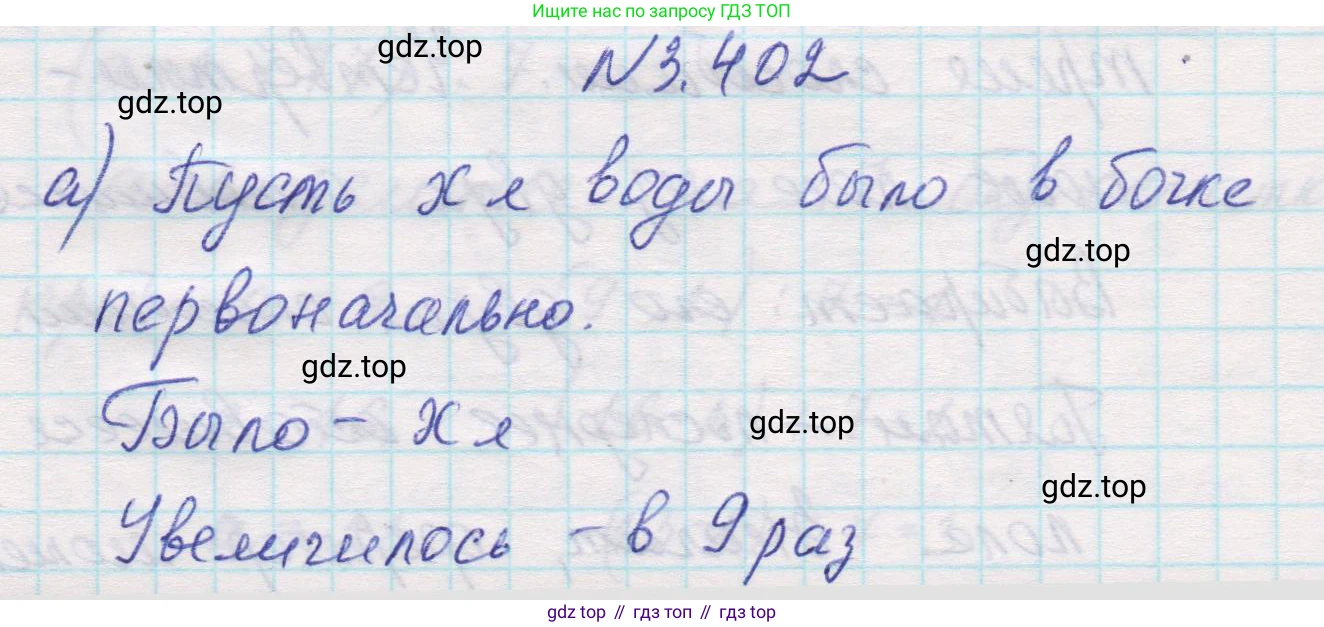 Ищите нас по запросу ГДЗ ТОП
gdz.top
N3.402
gdz.top
а) Пусть x л воды было в бочке
gdz.top
первоначально.
gdz.top
Было - x л
gdz.top
gdz.top
Увеличилось - в 9 раз
gdz top // гдз топ // gdz top